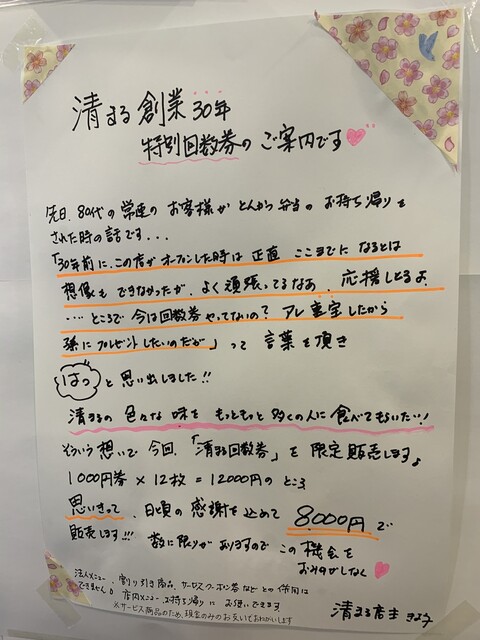 清まる創業30年
特別回数券のご案内です
先日、80代の常連のお客様がとんかつ弁当のお持ち帰りを
された時の話です...
「30年前に、この店がオープンした時は正直ここまでになるとは
想像もできなかったが、よく頑張ってるなあ、応援しとるよ、
…ところで今は回数券やってないの？アレ重宝したから
孫にプレゼントしたいのだが」って言葉を頂き
はっと思い出しました!!
清まるの色々な味をもっともっと多くの人に食べてもらいたい!
そういう想いで今回、「清まる回数券」を限定販売します。
1000円券×12枚=12000円のところ
思いきって、日頃の感謝を込めて8000円で
販売します!!! 数に限りがありますのでこの機会を
おみのがしなく
法人メニュー、割り引き商品、サービスクーポン券などとの併用は
できません。店内メニュー、お持ち帰りにお使いできます
※サービス商品のため、現金のみのお支払いでおねがいします
清まる店主